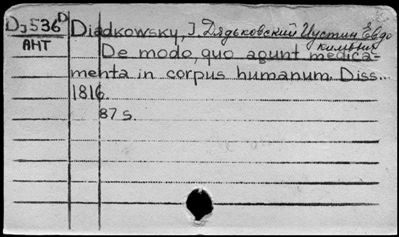 Dj536D Diadkowsky, J. Дядьковский Иустин Евдо
кимович
АНТ De modo, quo agunt medica-
menta in corpus humanum. Diss...
1816.
87 s.